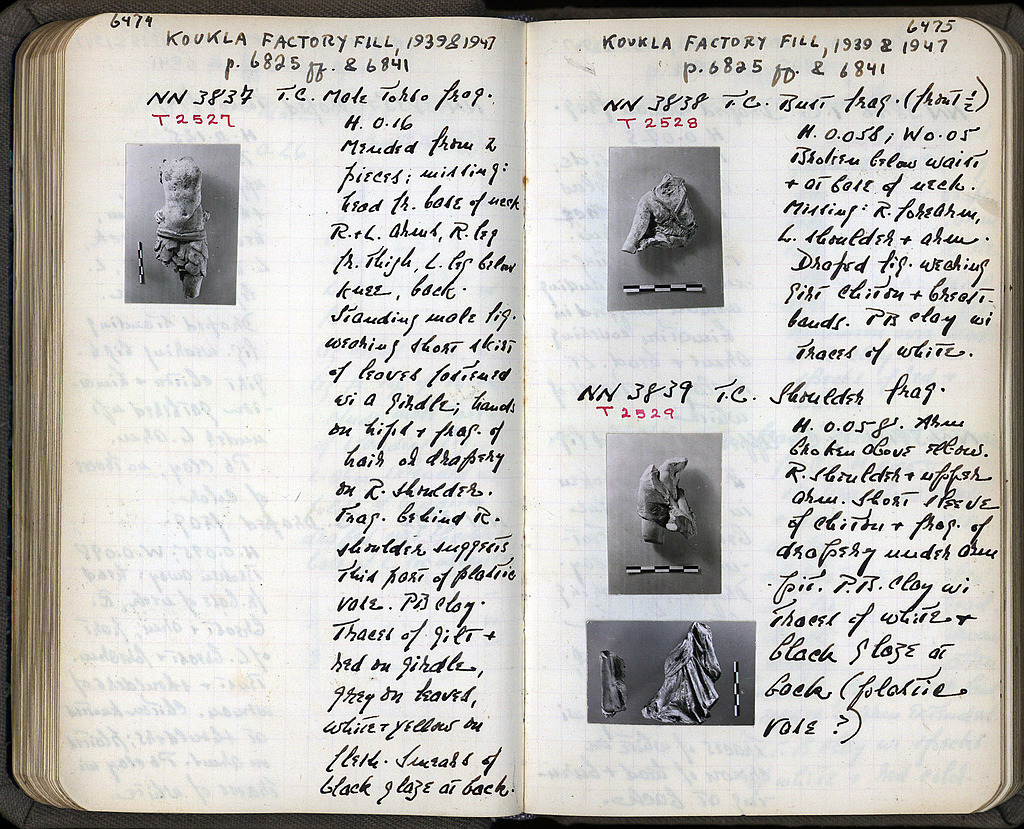 6474
KOUKLA FACTORY FILL, 1939 & 1947
p. 6825 ff. & 6841
NN 3837 T.C. Male Torso frag.
T 2527
H. 0.16
Mended from 2
pieces; missing:
head fr. base of neck
R. + L. arms, R. leg
fr. thigh, L. leg below
knee, back.
Standing male fig.
wearing short skirt
of leaves fastened
wi a girdle; hands
on hips + frag. of
hair or drapery
on R. shoulder.
Frag. behind R.
shoulder suggests
this part of plastic
vase. PB clay.
Traces of gilt +
red on girdle,
grey on leaves,
white + yellow on
flesh. Smears of
black glaze at back.
6475
KOUKLA FACTORY FILL, 1939 & 1947
p. 6825 ff. & 6841
NN 3838 T.C. Bust frag. (front ½)
T 2528
H. 0.058; W 0.05
Broken below waist
+ at base of neck.
Missing: R. forearm,
L. shoulder + arm.
Draped fig. wearing
girt chiton + breast-
bands. PB clay wi
traces of white.
NN 3839 T.C. Shoulder frag.
T 2529
H. 0.058. Arm
broken above elbow.
R. shoulder + upper
arm. Short sleeve
of chiton + frag. of
drapery under arm
pit. P.B. clay wi
traces of white +
black glaze at
back (plastic
vase ?)